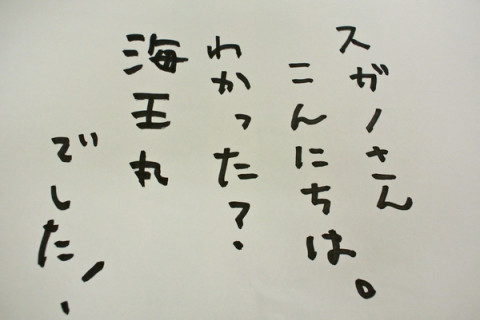 スガノさん
こんにちは。
わかった?
海王丸
でした!